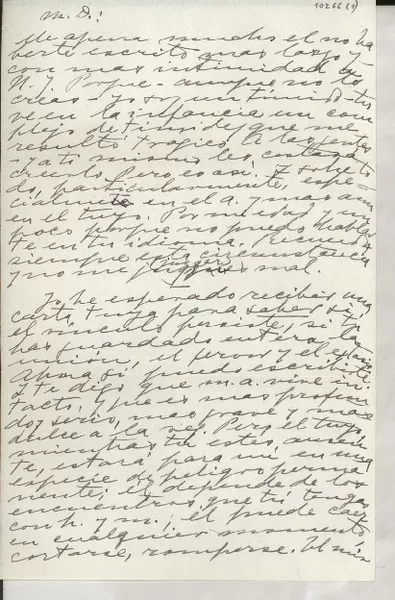 10266 (1)
M. D.:
Me apena mucho el no ha
berte escrito mas largo y
con mas intimidad de
N. Y. Porque - aunque no lo
creas - yo soy un tímido - tu
ve en la infancia un com
plejo de timidez que me
resultó trágico. A las gentes
- y a ti misma les costará
creerlo. Pero es así. Y sobre to
do, particularmente, espe-
cialmente en el a. y mas aun
en el tuyo. Por miedo y un
poco porque no puedo hablar
te en tu idioma. Recuerda
siempre esta circunstancia
y no me juzgues mal.
Yo he esperado recibir una
carta tuya para saber si
el vínculo persiste, si tú
has guardado entera la
unión, el fervor y el
Ahora sí puedo escribirte
y te digo que m. a. vive in
tacto. Y que es mas profun
do y serio, mas grave y mas
dulce a la vez. Pero el tuyo
mientras tú estés ausen
te, estará para mí en una
especie de peligro perma
nente; él depende de los
encuentros que tú tengas
con h. y m., él puede
en cualquier momento
cortarse, romperse. El mío